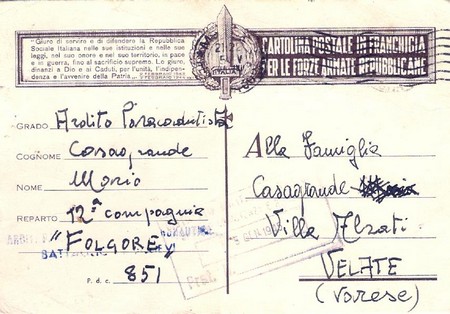 "Giuro di servire e di difendere la Repubblica
Sociale Italiana nelle sue istituzioni e nelle sue
leggi, nel suo onore e nel suo territorio, in pace
e in guerra, fino al sacrificio supremo. Lo giuro,
dinanzi a Dio e ai Caduti, per l'unità, l'indipen-
denza e l'avvenire della Patria...."
ITALIA
CARTOLINA POSTALE IN FRANCHIGIA
PER LE FORZE ARMATE REPUBBLICANE
GRADO Ardito Paracadutista
COGNOME Casagrande
NOME Mario
REPARTO 12ª compagnia
"FOLGORE"
P. d. c. 851
Alla Famiglia
Casagrande
Villa Alzati
VELATE
(Varese)